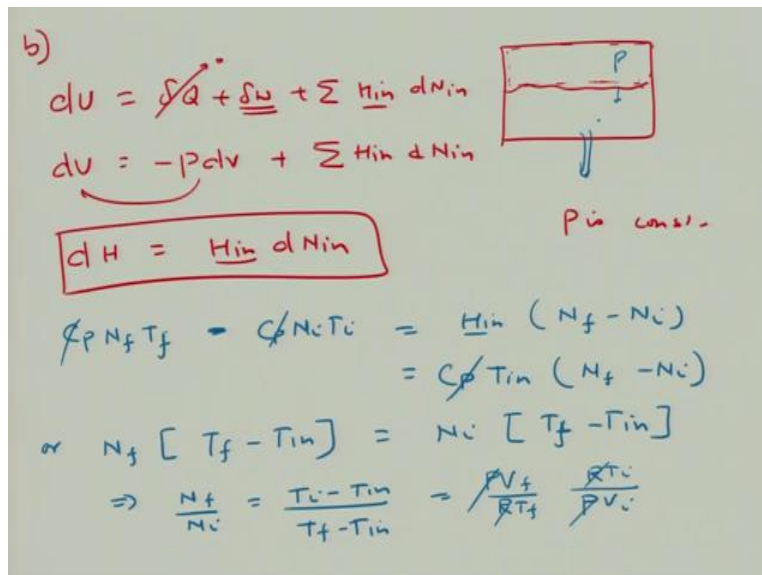 b)
dU = δQ + δW + Σ Hin dNin
P
dU = -Pdv + Σ Hin dNin
P is const.
dH = Hin dNin
Cp Nf Tf - Cp Ni Ti = Hin (Nf - Ni)
= Cp Tin (Nf - Ni)
or Nf [Tf - Tin] = Ni [Tf - Tin]
⇒ Nf/Ni = Ti - Tin/Tf - Tin = PVf/RTf RTi/PVi